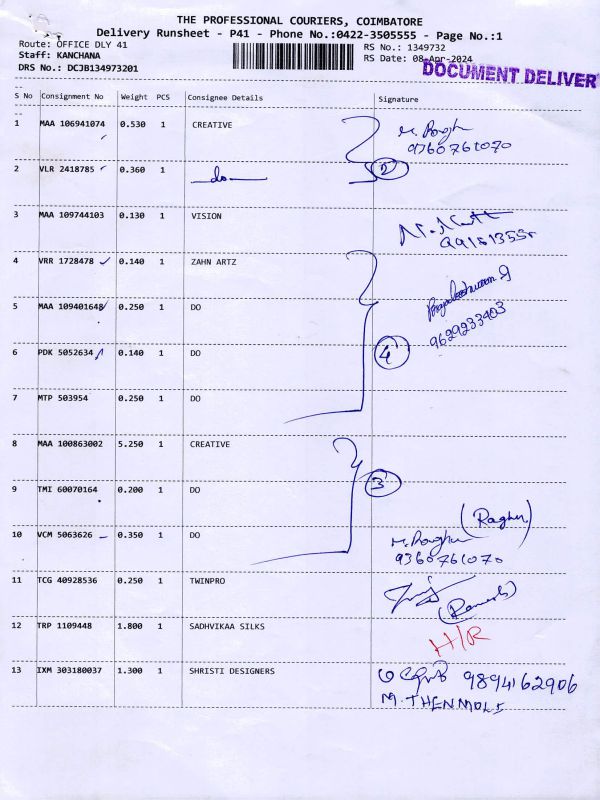 THE PROFESSIONAL COURIERS, COIMBATORE
Delivery Runsheet - P41 - Phone No.:0422-3505555 - Page No.:1
Route: OFFICE DLY 41
Staff: KANCHANA
DRS No.: DCJB134973201
RS No.: 1349732
RS Date: 08-Apr-2024
DOCUMENT DELIVER
S No Consignment No Weight PCS Consignee Details Signature
1 MAA 106941074 0.530 1 CREATIVE
9360761070
2 VLR 2418785 0.360 1 do 2
3 MAA 109744103 0.130 1 VISION
4 VRR 1728478 0.140 1 ZAHN ARTZ
5 MAA 109401648 0.250 1 DO
9629233403
6 PDK 5052634 0.140 1 DO 4
7 MTP 503954 0.250 1 DO
8 MAA 100863002 5.250 1 CREATIVE
9 TMI 60070164 0.200 1 DO 3
(Raghu)
10 VCM 5063626 0.350 1 DO
9360761070
11 TCG 40928536 0.250 1 TWINPRO
(Ramesh)
12 TRP 1109448 1.800 1 SADHVIKAA SILKS H/R
13 IXM 303180037 1.300 1 SHRISTI DESIGNERS 9894162906
M.THENMOLI